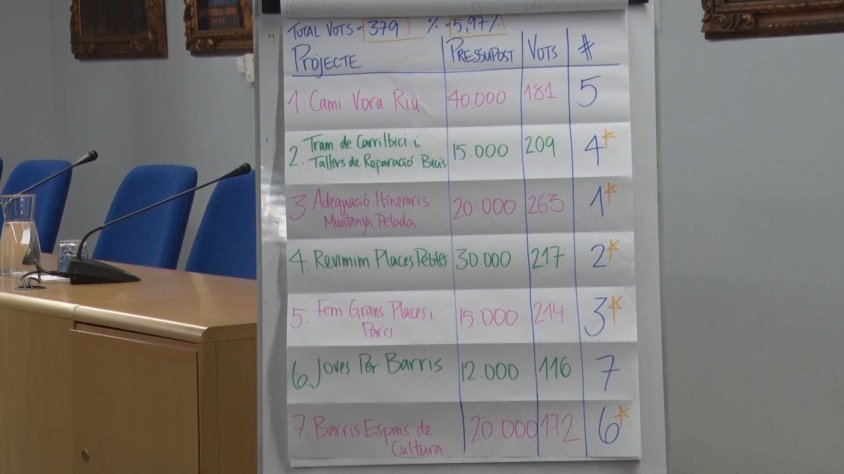 TOTAL VOTS - 379 % - 5,97%
PROJECTE PRESSUPOST VOTS #
1. Camí Vora Riu 40.000 181 5
2. Tram de Carrilbici i
Tallers de Reparació Bicis 15.000 209 4*
3. Adequació Itineraris
Muntanya Pelada 20.000 263 1*
4. Revivim Places Petites 30.000 217 2*
5. Fem Grans Places i
Parcs 15.000 214 3*
6. Joves Per Barris 12.000 116 7
7. Barris Espais de
Cultura 20.000 172 6*